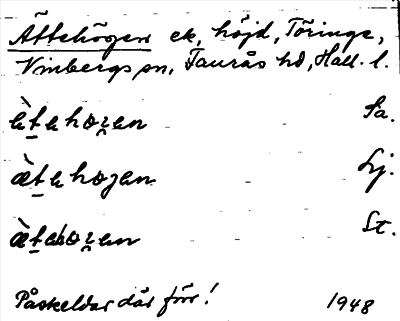 Ättehögen ek, höjd, Töringe,
Vinbergs sn, Faurås hd, Hall. l.
ὲt̲ehoʒen Sa.
æ̀t̲ehoʒen Lj.
æ̀t̲ehoʒen St.
Påskeldar där förr! 1948